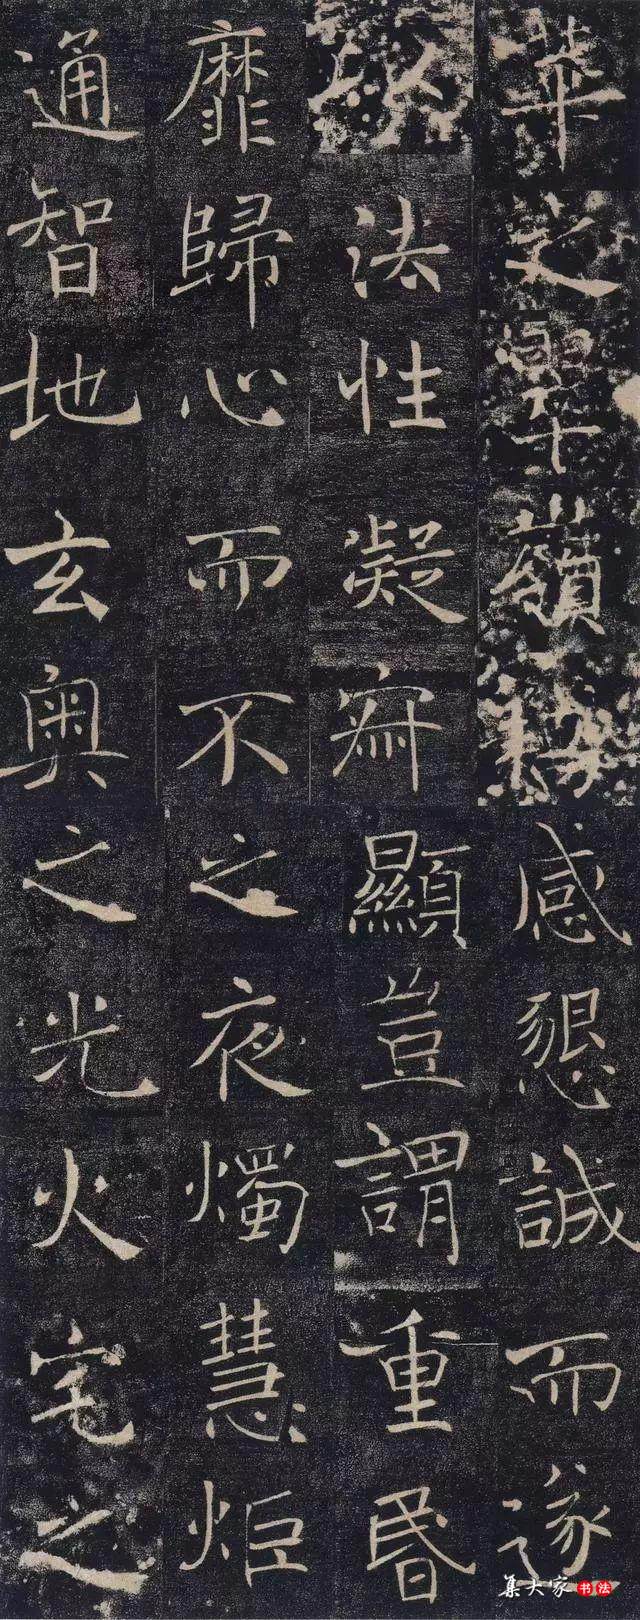 華之嶺感懇誠而遂
法性凝寂顯豈謂重昬
靡歸心而不之夜燭慧炬
通智地玄奥之光火宅之
集大家 书法